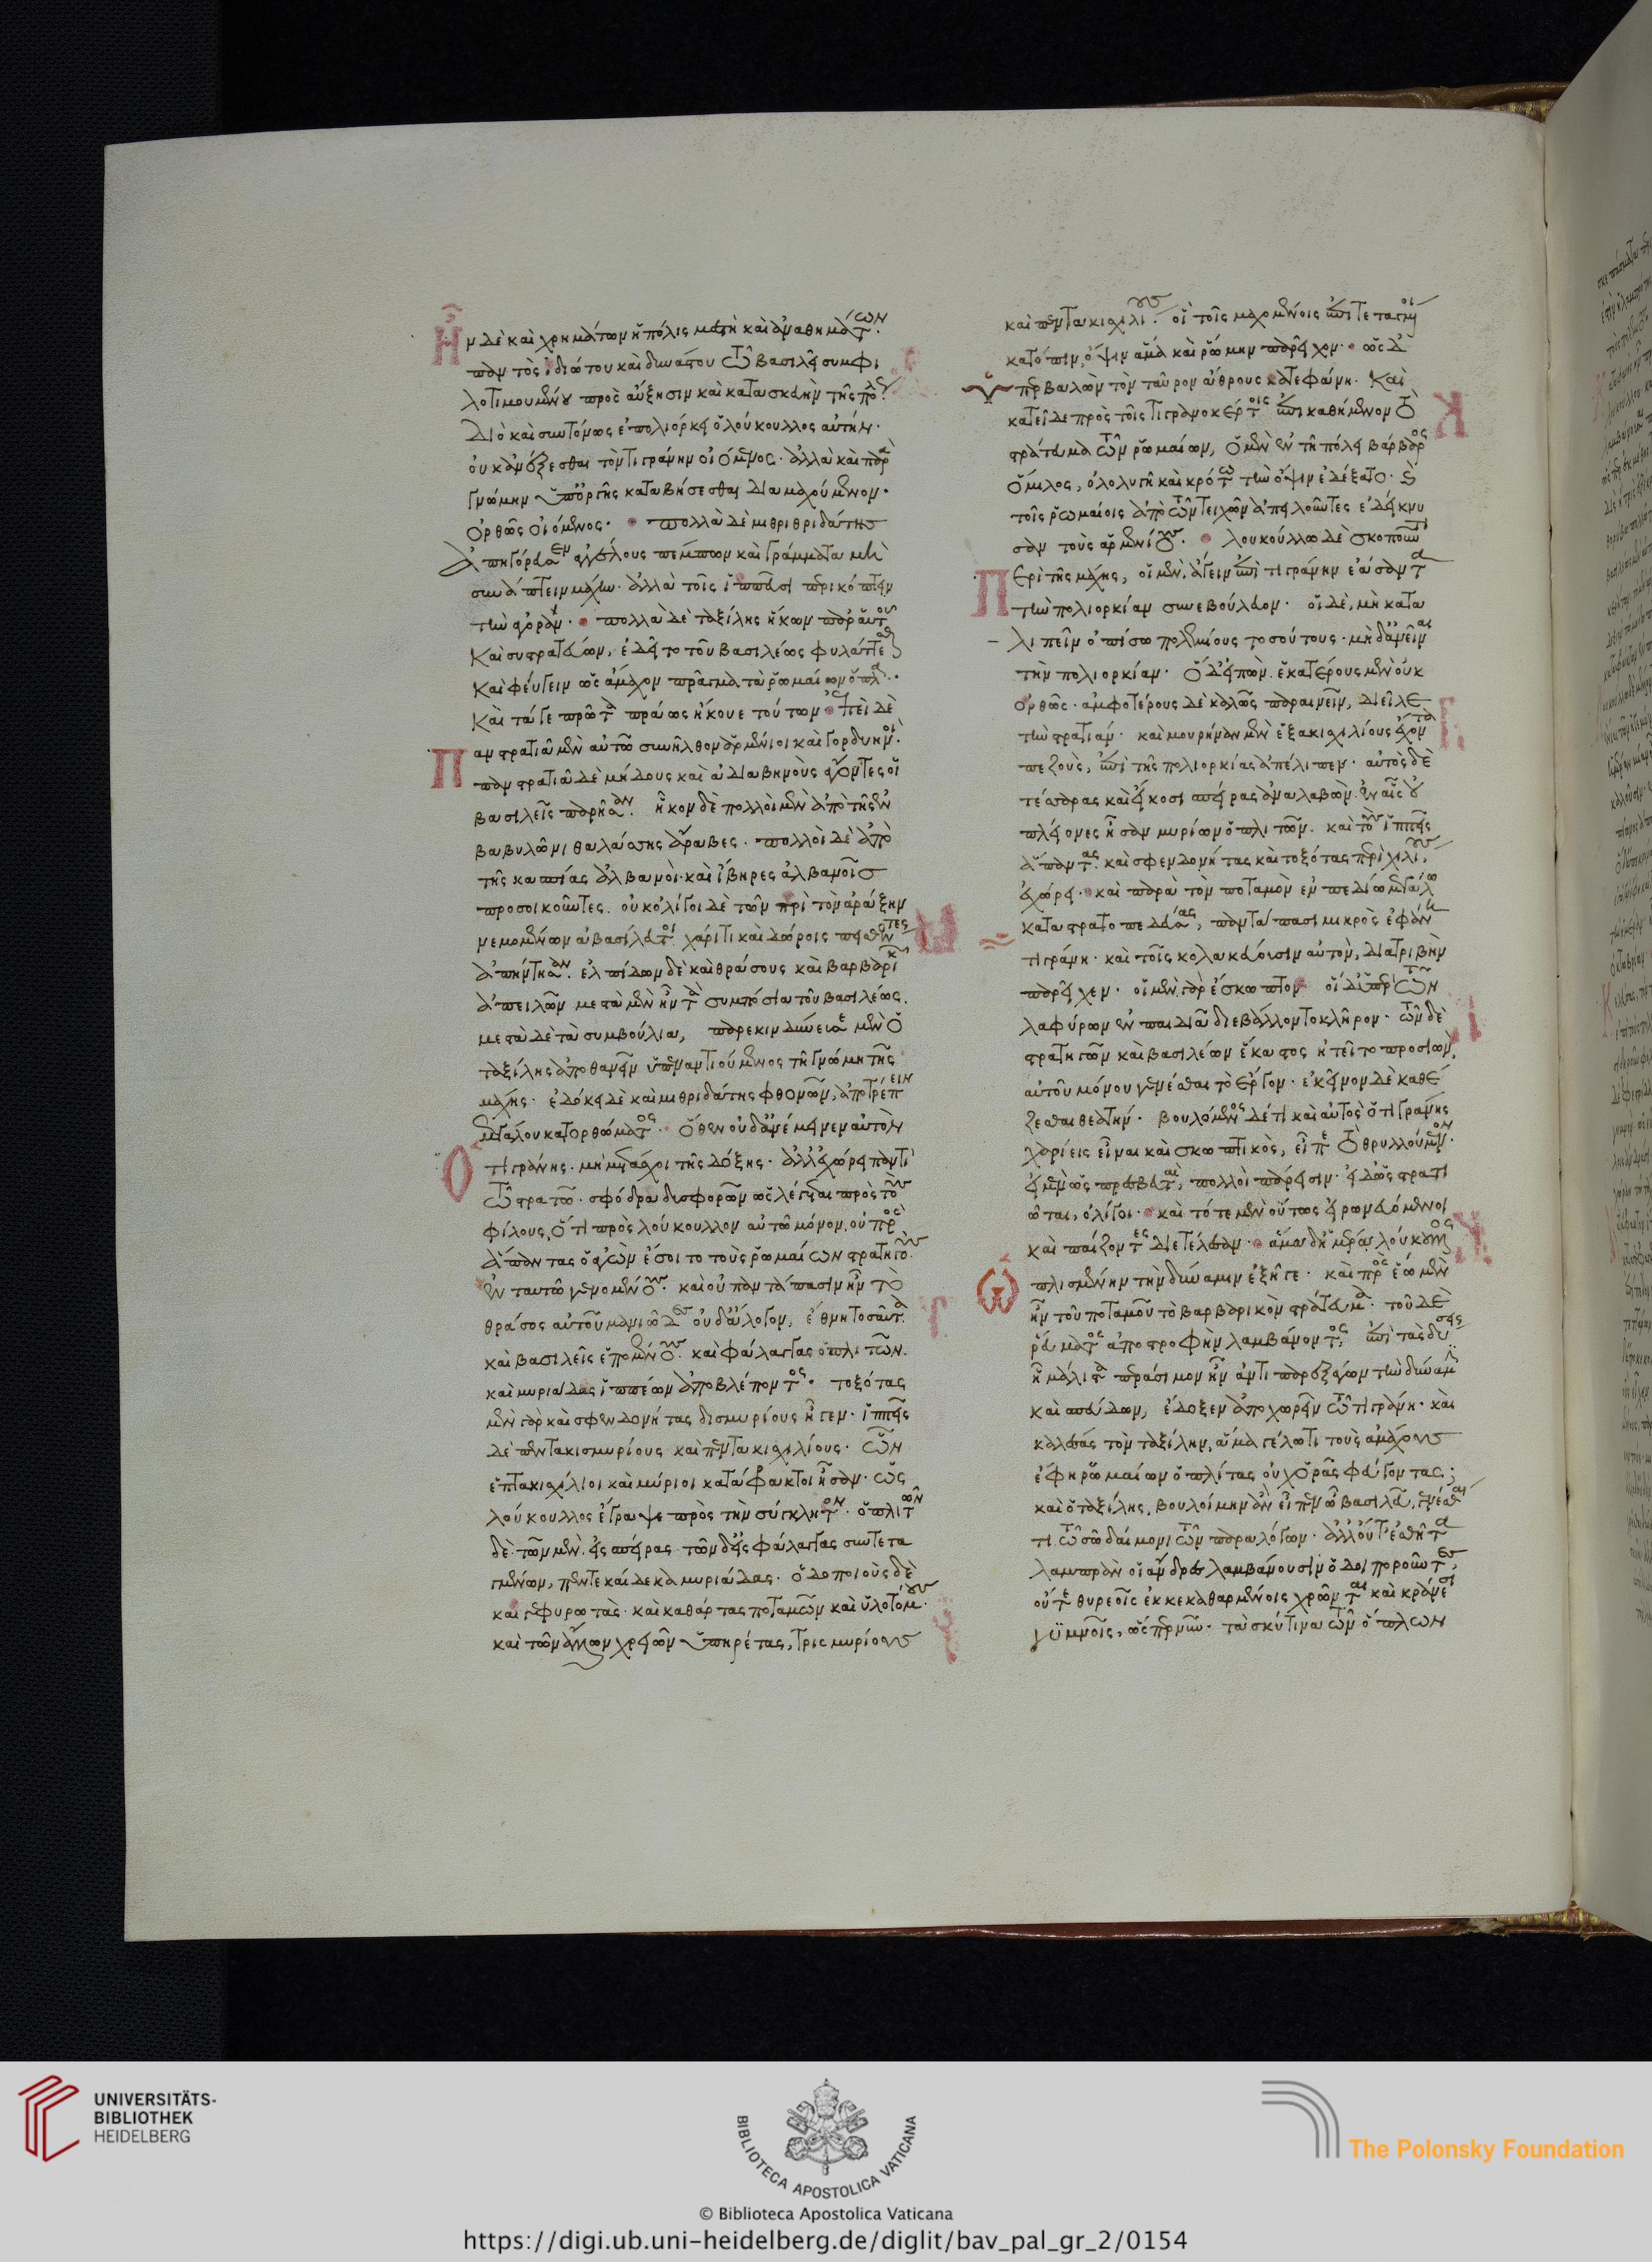 Ἦν δὲ καὶ χρημάτων ἡ πόλις μεστὴ καὶ ἀναθημάτων·
πᾶν τὸς ἰδιώτου καὶ δυνάστου τῷ βασιλεῖ συμφι
λοτιμουμένου πρὸς αὔξησιν καὶ κατασκευὴν τῆς πόλ
Διὸ καὶ συντόνως ἐπολιόρκει ὁ λούκουλλος αὐτήν·
οὐκ ἀνέξεσθαι τὸν τιγράνην οἰόμενος· ἀλλὰ καὶ παρὰ
γνώμην ὑπ' ὀργῆς καταβήσεσθαι διαμαχούμενον·
ὀρθῶς οἰόμενος· πολλὰ δὲ μιθριδάτης
ἀπηγόρευσεν ἀγγέλους πέμπων καὶ γράμματα μὴ
συνάπτειν μάχην· ἀλλὰ τοῖς ἱππεῦσι περικόπτειν
τὴν ἀγοράν· πολλὰ δὲ ταξίλης ἥκων παρ' αὐτοῦ
καὶ συστρατεύων, ἐδεῖτο τοῦ βασιλέως φυλάττεσθαι
καὶ φεύγειν ὡς ἄμαχον πρᾶγμα τὰ ῥωμαίων ὅπλα·
Καὶ τά γε πρῶτα πράως ἤκουε τούτων· ἐπεὶ δὲ
Πανστρατιᾷ μὲν αὐτῷ συνῆλθον ἀρμένιοι καὶ γορδυηνοί·
πανστρατιᾷ δὲ μήδους καὶ ἀδιαβηνοὺς ἄγοντες οἱ
βασιλεῖς παρῆσαν· ἧκον δὲ πολλοὶ μὲν ἀπὸ τῆς ἐν
βαβυλῶνι θαλάσσης ἄραβες· πολλοὶ δὲ ἀπὸ
τῆς κασπίας ἀλβανοὶ καὶ ἴβηρες ἀλβανοῖς
προσοικοῦντες· οὐκ ὀλίγοι δὲ τῶν περὶ τὸν ἀράξην
νεμομένων ἀβασίλευτοι χάριτι καὶ δώροις πεισθέντες
ἀπήντησαν· ἐλπίδων δὲ καὶ θράσους καὶ βαρβαρικ
ἀπειλῶν μεστὰ μὲν ἦν τὰ συμπόσια τοῦ βασιλέως·
μεστὰ δὲ τὰ συμβούλια, παρεκινδύνευσε μὲν ὁ
ταξίλης ἀποθανεῖν ὑπεναντιούμενος τῇ γνώμῃ τῆς
μάχης· ἐδόκει δὲ καὶ μιθριδάτης φθονῶν, ἀποτρέπειν
μεγάλου κατορθώματος· ὅθεν οὐδ' ἀνέμεινεν αὐτὸν
Ὁ τιγράνης· μὴ μετάσχοι τῆς δόξης· ἀλλ' ἐχώρει παντὶ
τῷ στρατῷ· σφόδρα δυσφορῶν ὡς λέγεται πρὸς τοὺς
φίλους, ὅτι πρὸς λούκουλλον αὐτῷ μόνον, οὐ πρὸς
ἅπαντας ὁ ἀγὼν ἔσοιτο τοὺς ῥωμαίων στρατηγοὺς
ἐν ταυτῷ γενομένους· καὶ οὐ παντάπασιν ἦν τὸ
θράσος αὐτοῦ μανιῶδες οὐδ' ἄλογον, ἔθνη τοσαῦτα
καὶ βασιλεῖς ἑπομένους· καὶ φάλαγγας ὁπλιτῶν·
καὶ μυριάδας ἱππέων ἀποβλέποντος· τοξότας
μὲν γὰρ καὶ σφενδονήτας δισμυρίους ἦγεν· ἱππεῖς
δὲ πεντακισμυρίους καὶ πεντακισχιλίους· ὧν
ἑπτακισχίλιοι καὶ μύριοι κατάφρακτοι ἦσαν· ὡς
λούκουλλος ἔγραψε πρὸς τὴν σύγκλητον· ὁπλιτῶν
δὲ τῶν μὲν εἰς σπείρας τῶν δ' εἰς φάλαγγας συντετα
γμένων, πεντεκαίδεκα μυριάδας· ὁδοποιοὺς δὲ
καὶ γεφυρωτὰς· καὶ καθάρτας ποταμῶν καὶ ὑλοτόμους·
καὶ τῶν ἄλλων χρειῶν ὑπηρέτας, τρισμυρίους
καὶ πεντακισχιλίους· οἳ τοῖς μαχομένοις ἐπιτεταγμένοι
κατόπιν, ὄψιν ἅμα καὶ ῥώμην παρεῖχον· ὡς δ'
ὑπερβαλὼν τὸν ταῦρον ἄθρους κατεφάνη· Καὶ
κατεῖδε πρὸς τοῖς τιγρανοκέρτοις ἐπικαθήμενον τὸ
στράτευμα τῶν ῥωμαίων, ὁ μὲν ἐν τῇ πόλει βάρβαρος
ὅμιλος, ὀλολυγῇ καὶ κρότῳ τὴν ὄψιν ἐδέξατο· καὶ
τοῖς ῥωμαίοις ἀπὸ τῶν τειχῶν ἀπειλοῦντες ἐδείκνυ
σαν τοὺς ἀρμενίους· λουκούλλῳ δὲ σκοποῦντι
Περὶ τῆς μάχης, οἱ μὲν, ἄγειν ἐπὶ τιγράνην ἐάσαντα
τὴν πολιορκίαν συνεβούλευον· οἱ δὲ, μὴ κατα
λιπεῖν ὀπίσω πολεμίους τοσούτους· μηδ' ἀνεῖναι
τὴν πολιορκίαν· ὁ δ' εἰπὼν ἑκατέρους μὲν οὐκ
ὀρθῶς· ἀμφοτέρους δὲ καλῶς παραινεῖν, διεῖλε
τὴν στρατιάν· καὶ μουρήναν μὲν ἑξακισχιλίους ἔχοντα
πεζοὺς, ἐπὶ τῆς πολιορκίας ἀπέλιπεν· αὐτὸς δὲ
τέσσαρας καὶ εἴκοσι σπείρας ἀναλαβὼν· ἐν αἷς οὐ
πλείονες ἦσαν μυρίων ὁπλιτῶν· καὶ τοὺς ἱππεῖς
ἅπαντας καὶ σφενδονήτας καὶ τοξότας περὶ χιλίους,
ἐχώρει· καὶ παρὰ τὸν ποταμὸν ἐν πεδίῳ μεγάλῳ
καταστρατοπεδεύσας, παντάπασι μικρὸς ἐφάνη
τιγράνῃ· καὶ τοῖς κολακεύουσιν αὐτὸν, διατριβὴν
παρεῖχεν· οἱ μὲν γὰρ ἔσκωπτον· οἱ δ' ὑπὲρ τῶν
λαφύρων ἐν παιδιᾷ διεβάλλοντο κλῆρον· τῶν δὲ
στρατηγῶν καὶ βασιλέων ἕκαστος ᾐτεῖτο προσιὼν,
αὐτοῦ μόνου γενέσθαι τὸ ἔργον· ἐκεῖνον δὲ καθέ
ζεσθαι θεατήν· βουλόμενος δέ τι καὶ αὐτὸς ὁ τιγράνης
χαρίεις εἶναι καὶ σκωπτικὸς, εἶπε τὸ θρυλλούμενον·
εἰ μὲν ὡς πρεσβευταὶ, πολλοὶ πάρεισιν· εἰ δ' ὡς στρατι
ῶται, ὀλίγοι· καὶ τότε μὲν οὕτως εἰρωνευόμενοι
καὶ παίζοντες διετέλεσαν· ἅμα δ' ἡμέρᾳ λούκουλλος
Ὡπλισμένην τὴν δύναμιν ἐξῆγε· καὶ πρὸς ἕω μὲν
ἦν τοῦ ποταμοῦ τὸ βαρβαρικὸν στράτευμα· τοῦ δὲ
ῥεύματος ἀποστροφὴν λαμβάνοντος, ἐπὶ τὰς δύσεις
ᾗ μάλιστα πράσιμον ἦν ἀντιπαρεξάγων τὴν δύναμιν
καὶ σπεύδων, ἔδοξεν ἀποχωρεῖν τῷ τιγράνῃ· καὶ
καλέσας τὸν ταξίλην, ἅμα γέλωτι τοὺς ἀμάχους
ἔφη ῥωμαίων ὁπλίτας οὐχ ὁρᾷς φεύγοντας;
καὶ ὁ ταξίλης, βουλοίμην ἂν εἶπεν ὦ βασιλεῦ, γενέσθαι
τι τῷ σῷ δαίμονι τῶν παραλόγων· ἀλλ' οὔτ' ἐσθῆτα
λαμπρὰν οἱ ἄνδρες λαμβάνουσιν ὁδοιποροῦντες,
οὔτε θυρεοῖς ἐκκεκαθαρμένοις χρῶνται καὶ κράνεσι
γυμνοῖς, ὥσπερ νῦν· τὰ σκύτινα τῶν ὅπλων
UNIVERSITÄTS-
BIBLIOTHEK
HEIDELBERG
BIBLIOTECA APOSTOLICA VATICANA
The Polonsky Foundation
© Biblioteca Apostolica Vaticana
https://digi.ub.uni-heidelberg.de/diglit/bav_pal_gr_2/0154